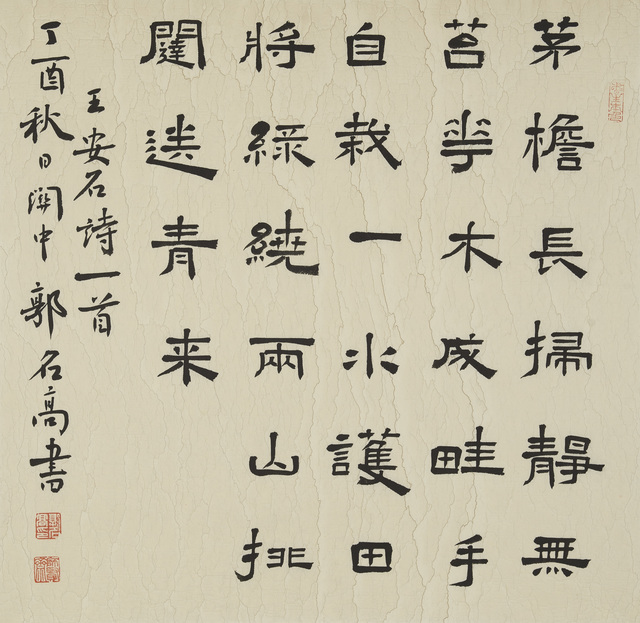 茅檐長掃靜無
苔華木成畦手
自栽一水護田
將綠繞兩山排
闥送青来
王安石詩一首
丁酉秋日關中郭名高書